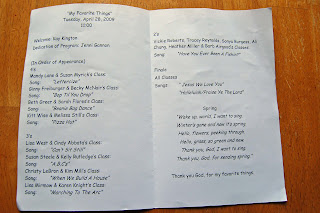 "My Favorite Things"
Tuesday, April 28, 2009
10:00
Welcome: Kay Kington
Dedication of Program: Jenni Gannon
(In Order of Appearance)
K's
Mandy Lane & Susan Myrick's Class:
Song: "Letterwise"
Ginny Freiburger & Becky McNair's Class:
Song: "Bop Til You Drop"
Beth Greer & Sarah Flores's Class:
Song: "Banana Bag Dance"
Kitt Wise & Melissa Still's Class:
Song: "Pizza Hut"
3's
Lisa West & Cindy Kobetz's Class:
Song: "Can't Sit Still"
Susan Steele & Kelly Rutledge's Class:
Song: "A,B,C's"
Christy LeBron & Kim Mill's Class:
Song: "When We Build A House"
Lisa Mirmow & Karen Knight's Class:
Song: "Marching To The Arc"
2's
Vickie Roberts, Tracey Reynolds, Sonya Burgess, Ali
Chang, Heather Miller & Barb Arapad's Classes:
Song: "Have You Ever Been A Fishin?"
Finale
All Classes
Songs: "Jesus We Love You"
"Hallelujah/Praise Ye The Lord"
Spring
"Wake up, world, I want to sing
Winter's gone and now it's spring
Hello, flowers, peeking through
Hello, grass, so green and new
Thank you, God, I want to sing
Thank you, God, for sending spring."
Thank you God, for my favorite things